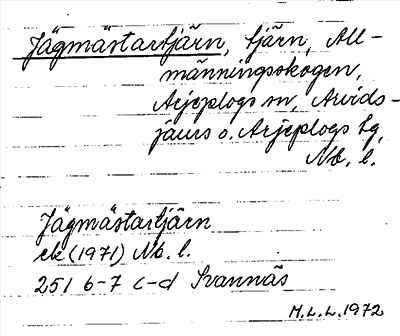 Jägmästartjärn, tjärn, All-
männingsskogen,
Arjeplogs sn, Arvids-
jaurs o. Arjeplogs tg,
Nb. l.
Jägmästartjärn
ek (1971) Nb. l.
25 I 6-7 c-d Svannäs
M.L.L. 1972